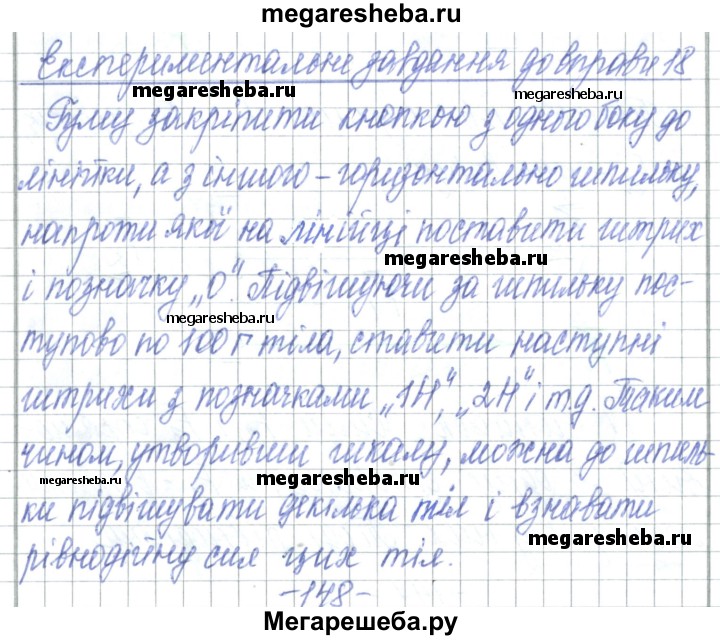 megaresheba.ru
Експериментальне завдання до вправи 18
megaresheba.ru
megaresheba.ru
Гуму закріпити кнопкою з одного боку до
лінійки, а з іншого – горизонтально шпильку,
напроти якої на лінійці поставити штрих
megaresheba.ru
і позначку „0“. Підвішуючи за шпильку пос-
megaresheba.ru
тупово по 100 г тіла, ставити наступні
штрихи з позначками „1Н“, „2Н“ і т.д. Таким
чином, утворивши шкалу, можна до шпиль-
megaresheba.ru
megaresheba.ru
ки підвішувати декілька тіл і взнавати
megaresheba.ru
рівнодійну сил цих тіл.
-148-
Мегарешеба.ру